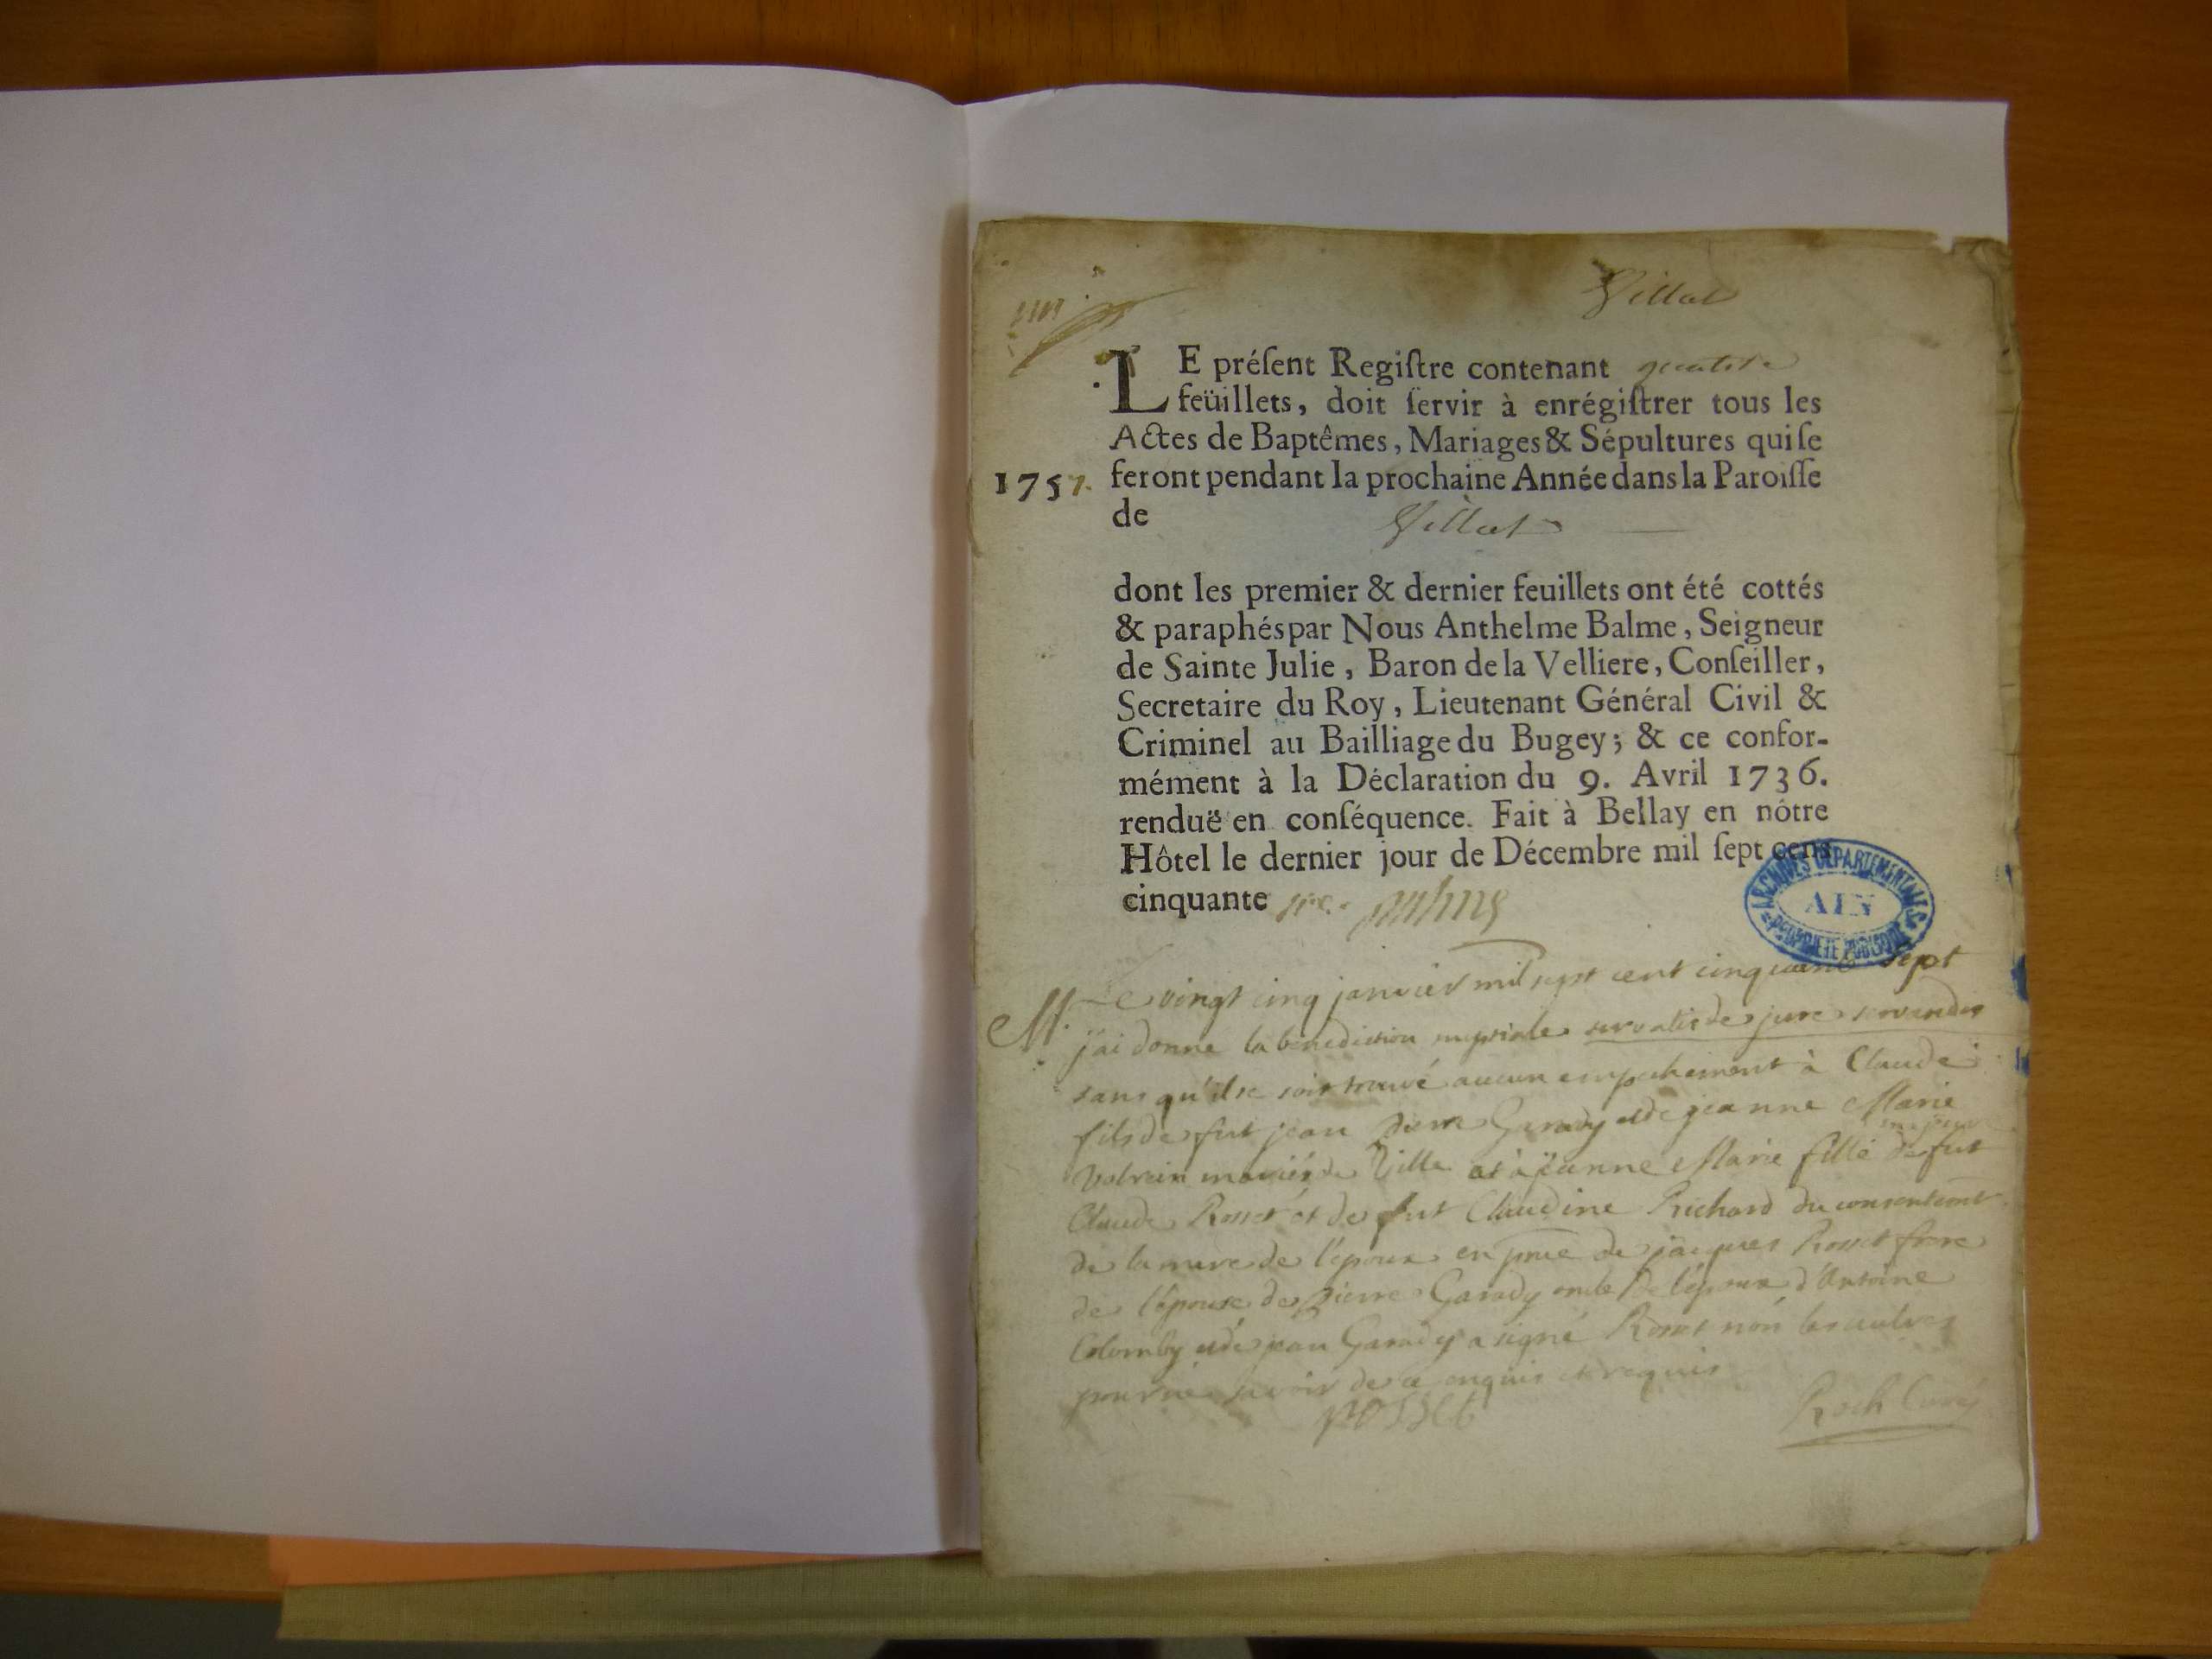 Villat
LE préſent Regiſtre contenant quatorze
feüillets, doit ſervir à enrégiſtrer tous les
Actes de Baptêmes, Mariages & Sépultures qui ſe
1757. feront pendant la prochaine Année dans la Paroiſſe
de Villat
dont les premier & dernier feuillets ont été cottés
& paraphés par Nous Anthelme Balme, Seigneur
de Sainte Julie, Baron de la Velliere, Conſeiller,
Secretaire du Roy, Lieutenant Général Civil &
Criminel au Bailliage du Bugey; & ce confor-
mément à la Déclaration du 9. Avril 1736.
renduë en conſéquence. Fait à Bellay en nôtre
Hôtel le dernier jour de Décembre mil ſept cens
cinquante
ARCHIVES DEPARTEMENTALES
AIN
PROPRIETE PUBLIQUE
M. Le vingt cinq janvier mil sept cent cinquante sept
j'ai donne la benediction nuptiale servatis de jure servandis
sans qu'il se soit trouvé aucun empechement à Claude
fils de fut jean Pierre Garady et de jeanne Marie
de Ville et à jeanne Marie fille de fut
Claude Rosset et de fut Claudine Richard du consentemt
de la mere de l'epoux en pnce de jacques Rosset frere
de l'epouse de Pierre Garady oncle de l'epoux d'Antoine
Colomby et de jean Garady a signé Rosset non les autres
pour ne savoir de ce enquis et requis
rosset
Roch Curé